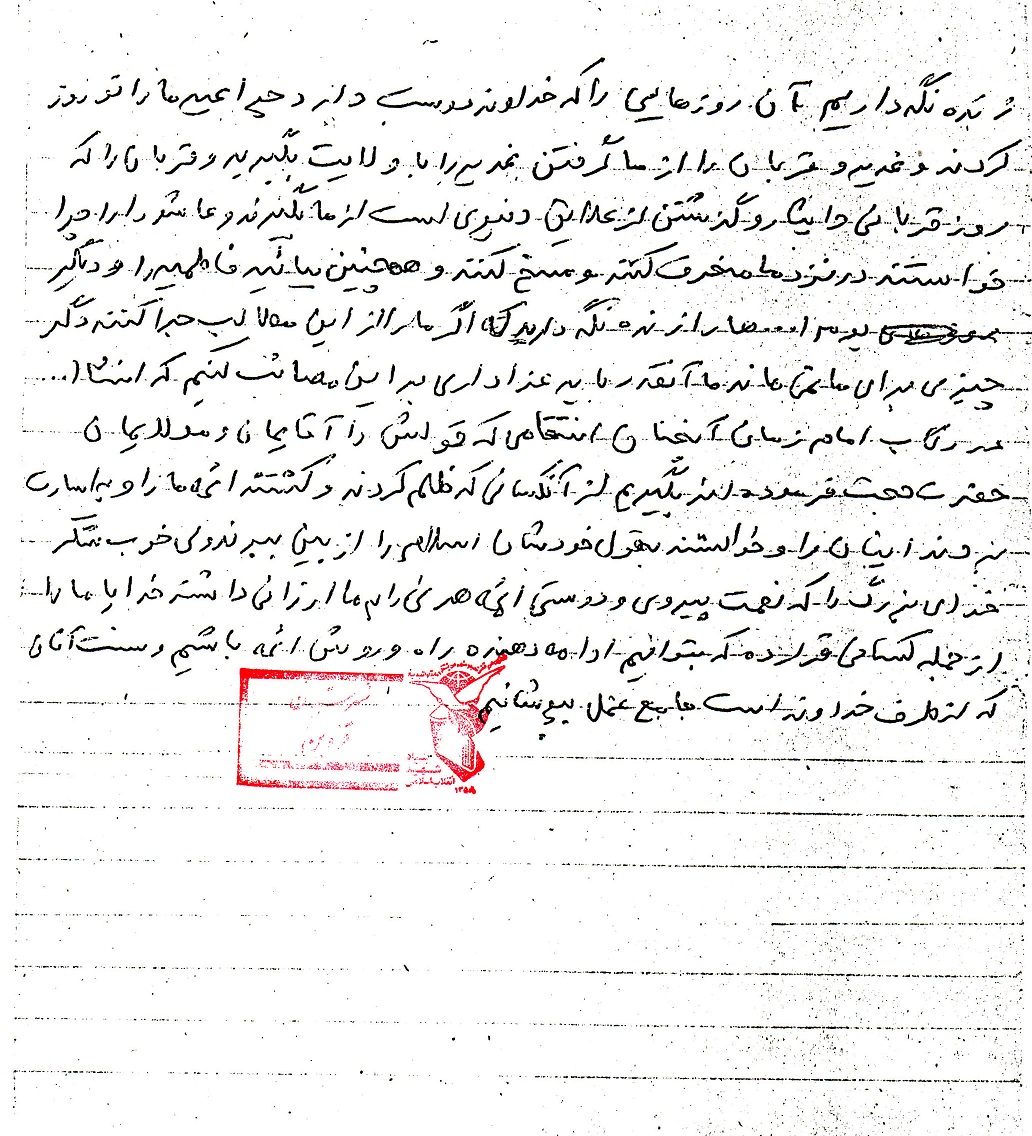 زنده نگه داریم آن روزهایی را که خداوند دوست دارد حتی اعیاد ما را تو روز
کردند و غدیر و قربان را از ما گرفتن غدیر را با ولایت بگیرید و قربان را که
روز قربانی و ایثار و گذشتن از علایق دنیوی است از ما بگیرند و عاشورا را چرا
خواستند در نزد ما منحرف کنند و مسخ کنند و همچنین بیائید فاطمیه را و دیگر
یوم ا... ها را زنده نگه دارید که اگر ما را از این مطالب جدا کنند دگر
چیزی برای ما نمی ماند ما آنقدر باید عزاداری بر این مصائب کنیم که انشاا...
در رکاب امام زمان آنچنان انتقامی که قولش را آقایمان و مولایمان
حضرت حجت فرموده اند بگیریم از آنکسانی که ظلم کردند و کشتند ائمه ما را و به اسارت
بردند اینان را و خواستند بقول خودشان اسلام را از بین ببرند ولی خوب شکر
خدای بزرگ را که نعمت پیروی و دوستی ائمه هدی را بر ما ارزانی داشته خدایا ما را
از جمله کسانی قرار ده که بتوانیم ادامه دهنده راه و روش ائمه باشیم و سنت آنان
که از طرف خداوند است جامع عمل بپوشانیم
قزوین
بنیاد
شهید
انقلاب اسلامی
۱۳۵۸